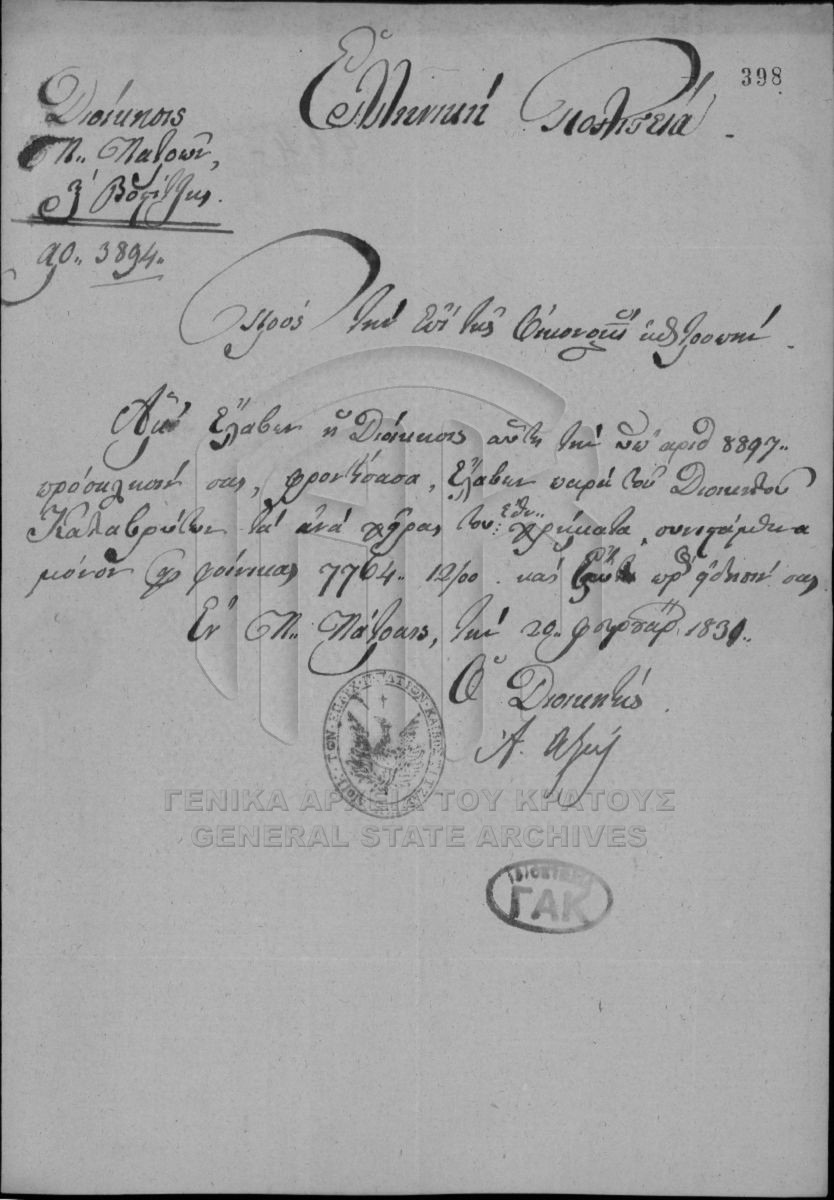 398
Ἑλληνικὴ Πολιτεία
Διοίκησις
Π. Πατρῶν,
& Βοστίτζης.
ἀρ. 3894.
Πρὸς τὴν ἐπὶ τῆς Οἰκονομίας ἐπιτροπήν.
ἔλαβεν ἡ Διοίκησις αὕτη τὴν ὑπ' ἀριθ 8897
πρόσκλησίν σας, φροντίσασα, ἔλαβεν παρὰ τοῦ Διοικητοῦ
Καλαβρύτων τὰ ἀνὰ χεῖρας του ἐθν. χρήματα, συνιστάμενα
μόνον φοίνικας 7764 12/00 καὶ πρὸς εἴδησίν σας
Ἐν Π. Πάτραις, τὴν 20 φευρουαρ. 1831.
Ὁ Διοικητὴς
Α.
ΓΕΝΙΚΑ ΑΡΧΕΙΑ ΤΟΥ ΚΡΑΤΟΥΣ
GENERAL STATE ARCHIVES
ΓΑΚ